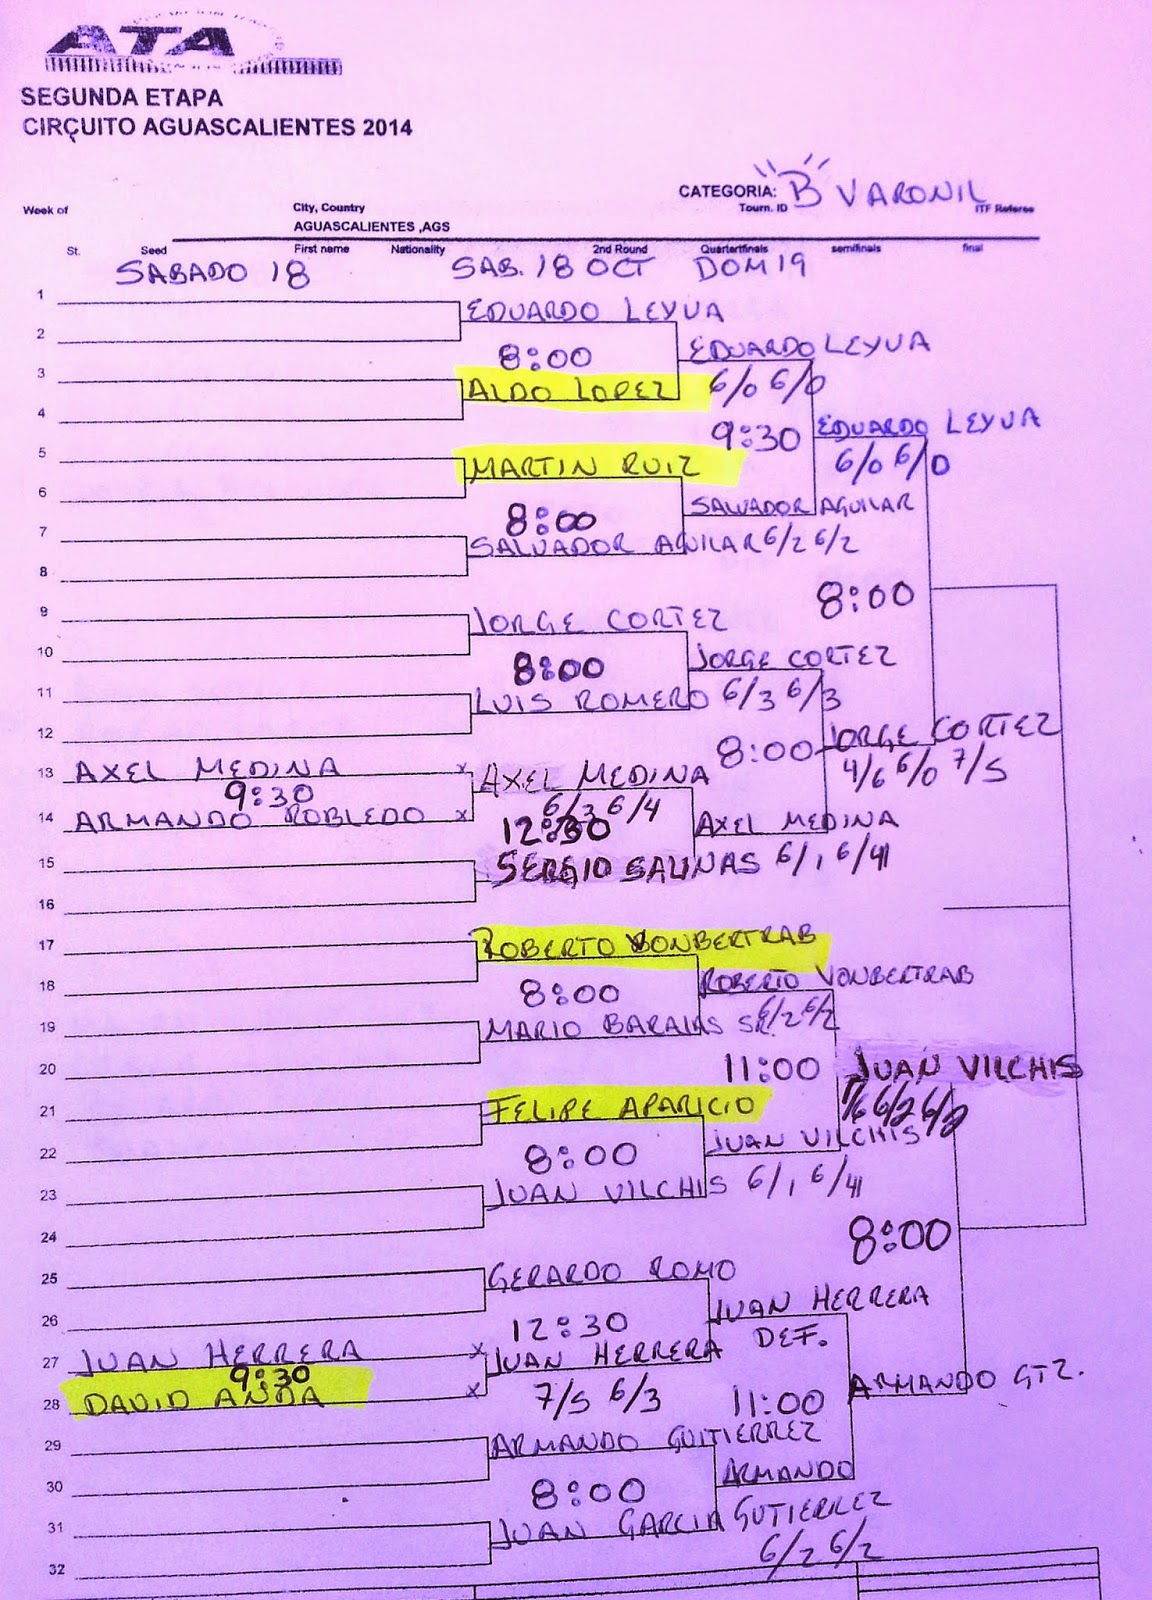 ATA
SEGUNDA ETAPA
CIRÇUITO AGUASCALIENTES 2014
CATEGORIA: "B" VARONIL
Week of City, Country Tourn. ID ITF Referee
AGUASCALIENTES ,AGS
St. Seed First name Nationality 2nd Round Quarterfinals semifinals final
SABADO 18 SAB. 18 OCT DOM 19
1 EDUARDO LEYVA
2 8:00 EDUARDO LEYVA
3 ALDO LOPEZ 6/0 6/0
4 9:30 EDUARDO LEYVA
5 MARTIN RUIZ 6/0 6/0
6 8:00 SALVADOR AGUILAR
7 SALVADOR AGUILAR 6/2 6/2
8
8:00
9 JORGE CORTEZ
10 8:00 JORGE CORTEZ
11 LUIS ROMERO 6/3 6/3
12 8:00 JORGE CORTEZ
4/6 6/0 7/5
13 AXEL MEDINA x AXEL MEDINA
9:30 6/3 6/4
14 ARMANDO ROBLEDO x 12:30 AXEL MEDINA
15 SERGIO SALINAS 6/1 6/4
16
17 ROBERTO VONBERTRAB
18 8:00 ROBERTO VONBERTRAB
19 MARIO BARAJAS SR 6/2 6/2
20 11:00 JUAN VILCHIS
21 FELIPE APARICIO 6/2 6/2
22 8:00 JUAN VILCHIS
23 JUAN VILCHIS 6/1 6/4
24
8:00
25 GERARDO ROMO
26 12:30 JUAN HERRERA
27 JUAN HERRERA x JUAN HERRERA DEF.
9:30
28 DAVID ANDA x 7/5 6/3 11:00 ARMANDO GTZ.
29 ARMANDO GUITIERREZ
30 8:00 ARMANDO
31 JUAN GARCIA GUTIERREZ
32 6/2 6/2